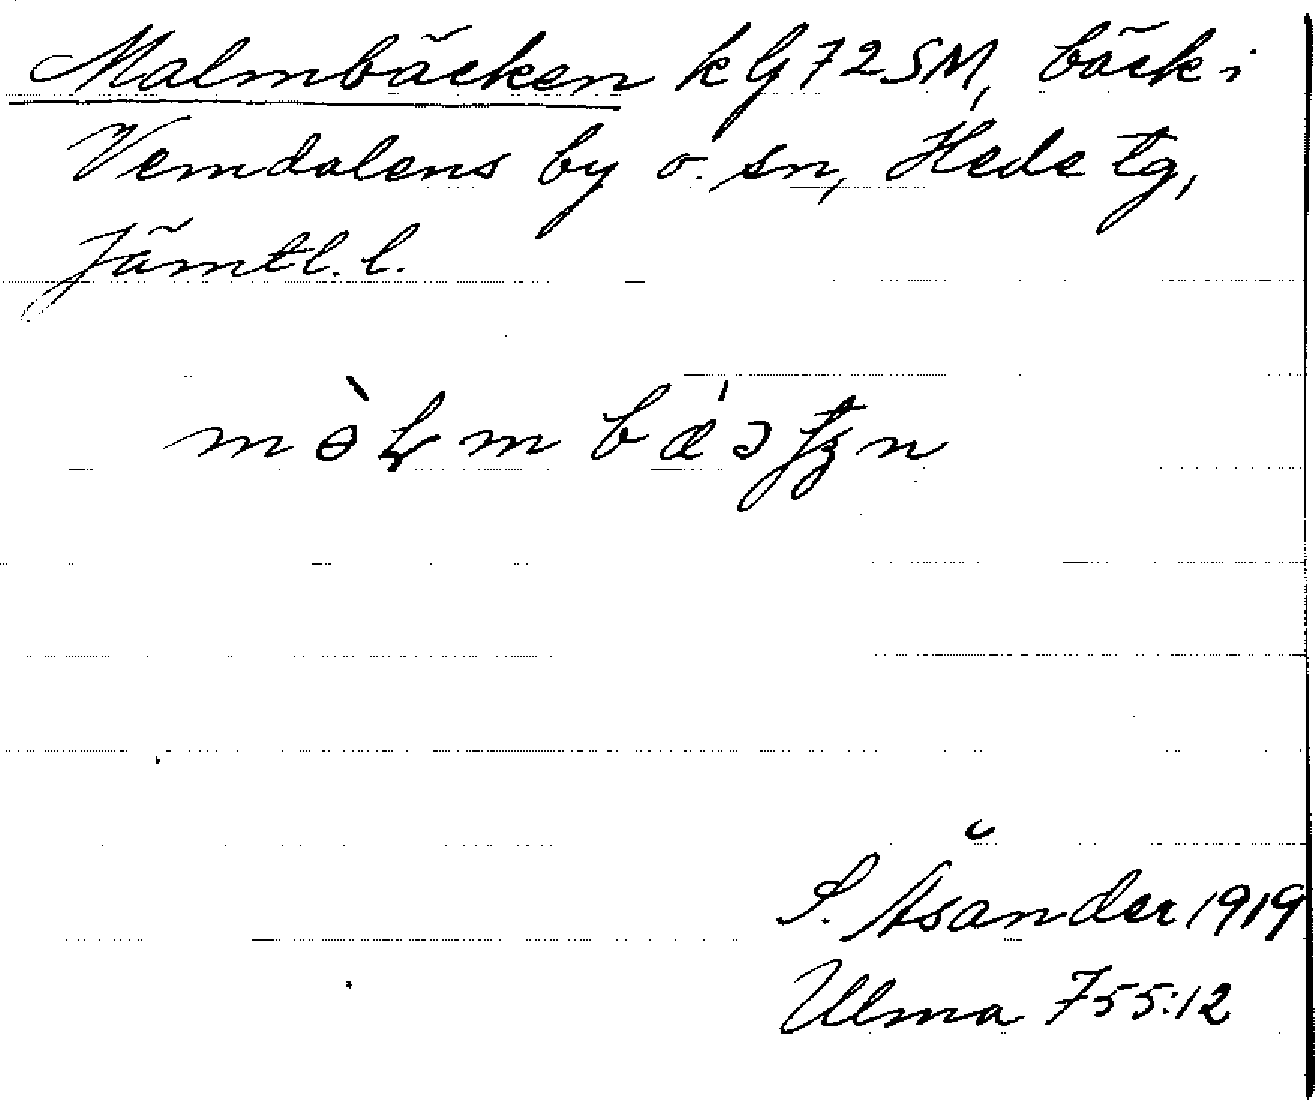 Malmbäcken k G 72 SM, bäck i
Vemdalens by o. sn, Hede tg,
Jämtl. l.
S. Åsander 1919
Ulma 755:12